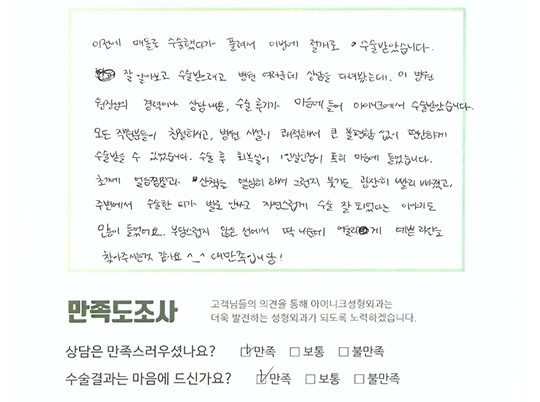 이전에 매몰로 수술했다가 풀려서 이번에 절개로 수술받았습니다.
잘 알아보고 수술받으려고 병원 여러군데 상담을 다녀봤는데, 이 병원
원장님의 경력이나 상담내용, 수술 후기가 마음에 들어 아이니크에서 수술받았습니다.
모든 직원분들이 친절하시고, 병원 시설이 쾌적해서 큰 불편함 없이 편안하게
수술받을 수 있었습니다. 수술 후 회복실이 1인실인점이 특히 마음에 들었습니다.
초기에 얼음찜질과 산책을 열심히 해서 그런지 붓기는 굉장히 빨리 빠졌고,
주변에서 수술한 티가 별로 안나고 자연스럽게 수술 잘 되었다는 이야기도
많이 들었어요. 부담스럽지 않은 선에서 딱 나한테 어울리게 예쁜 라인을
찾아주시는것 같아요 ^_^ 대만족입니당!
만족도조사
고객님들의 의견을 통해 아이니크성형외과는
더욱 발전하는 성형외과가 되도록 노력하겠습니다.
상담은 만족스러우셨나요? ☑만족 □보통 □불만족
수술결과는 마음에 드신가요? ☑만족 □보통 □불만족